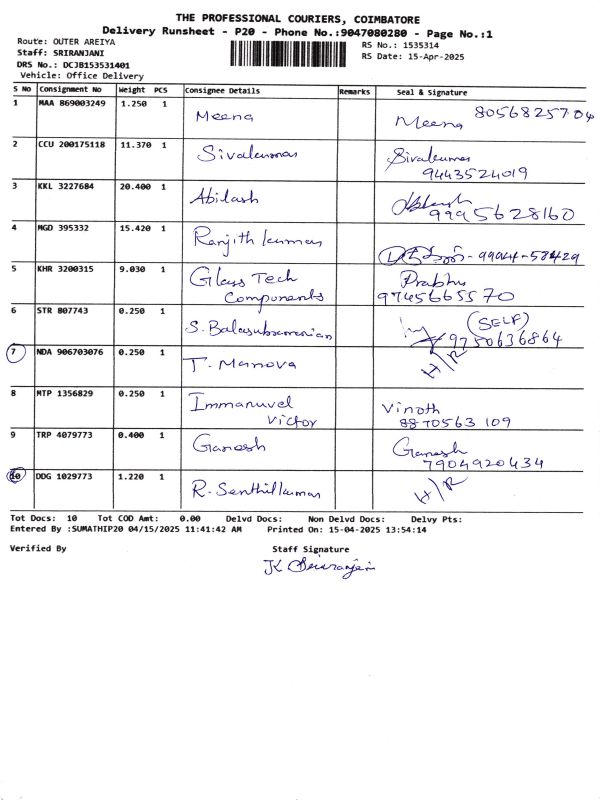 THE PROFESSIONAL COURIERS, COIMBATORE
Delivery Runsheet - P20 - Phone No.:9047080280 - Page No.:1
Route: OUTER AREIYA
RS No.: 1535314
Staff: SRIRANJANI
RS Date: 15-Apr-2025
DRS No.: DCJB153531401
Vehicle: Office Delivery
S No Consignment No Weight PCS Consignee Details Remarks Seal & Signature
1 MAA 869003249 1.250 1 Meena Meena 8056825704
2 CCU 200175118 11.370 1 Sivakumar Sivakumar
9443524019
3 KKL 3227684 20.400 1 Abilash
9995628160
4 MGD 395332 15.420 1 Ranjith kumar
5 KHR 3200315 9.030 1 Glass Tech Prabhu
Components 9745665570
6 STR 807743 0.250 1 S. Balasubramanian (SELF)
9750636864
7 NDA 906703076 0.250 1 T. Manova H/R
8 MTP 1356829 0.250 1 Immanuvel Vinoth
Victor 8870563 109
9 TRP 4079773 0.400 1 Ganesh Ganesh
7904920434
10 DDG 1029773 1.220 1 R. Senthilkumar H/R
Tot Docs: 10 Tot COD Amt: 0.00 Delvd Docs: Non Delvd Docs: Delvy Pts:
Entered By :SUMATHIP20 04/15/2025 11:41:42 AM Printed On: 15-04-2025 13:54:14
Verified By Staff Signature